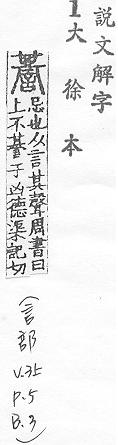 說文解字
1大徐本
忌也从言其聲周書曰
上不諅于凶德渠記切
(言部
V.3上
P.5
B.3)